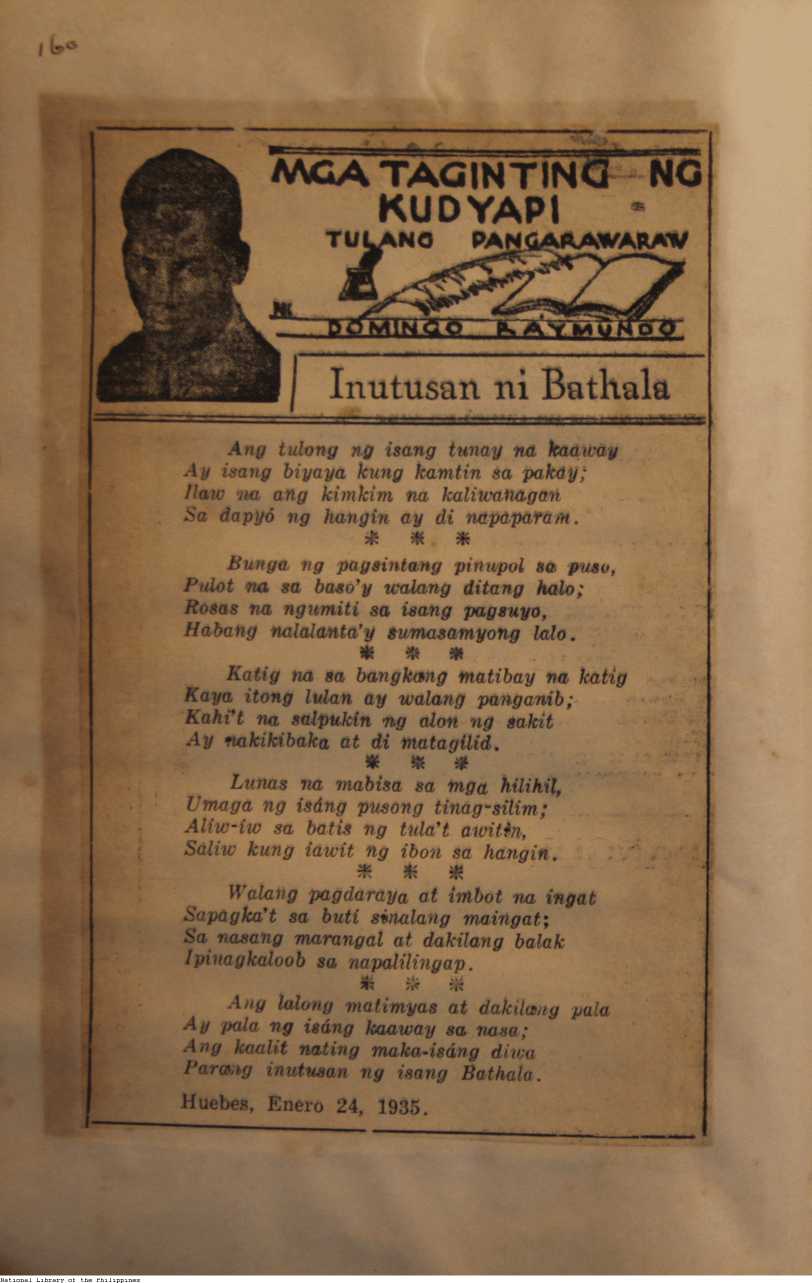 160
MGA TAGINTING NG
KUDYAPI
TULANG PANGARAWARAW
NI
DOMINGO RAYMUNDO
Inutusan ni Bathala
Ang tulong ng isang tunay na kaaway
Ay isang biyaya kung kamtin sa pakay;
Ilaw na ang kimkim na kaliwanagan
Sa dapyó ng hangin ay di napaparam.
* * *
Bunga ng pagsintang pinupol sa puso,
Pulot na sa baso'y walang ditang halo;
Rosas na ngumiti sa isang pagsuyo,
Habang nalalanta'y sumasamyong lalo.
* * *
Katig na sa bangkang matibay na katig
Kaya itong lulan ay walang panganib;
Kahi't na salpukin ng alon ng sakit
Ay nakikibaka at di matagilid.
* * *
Lunas na mabisa sa mga hilihil,
Umaga ng isáng pusong tinag-silim;
Aliw-iw sa batis ng tula't awitin,
Saliw kung iawit ng ibon sa hangin.
* * *
Walang pagdaraya at imbot na ingat
Sapagka't sa buti sinalang maingat;
Sa nasang marangal at dakilang balak
Ipinagkaloob sa napalilingap.
* * *
Ang lalong matimyas at dakilang pala
Ay pala ng isáng kaaway sa nasa;
Ang kaalit nating maka-isáng diwa
Parang inutusan ng isang Bathala.
Huebes, Enero 24, 1935.
National Library of the Philippines